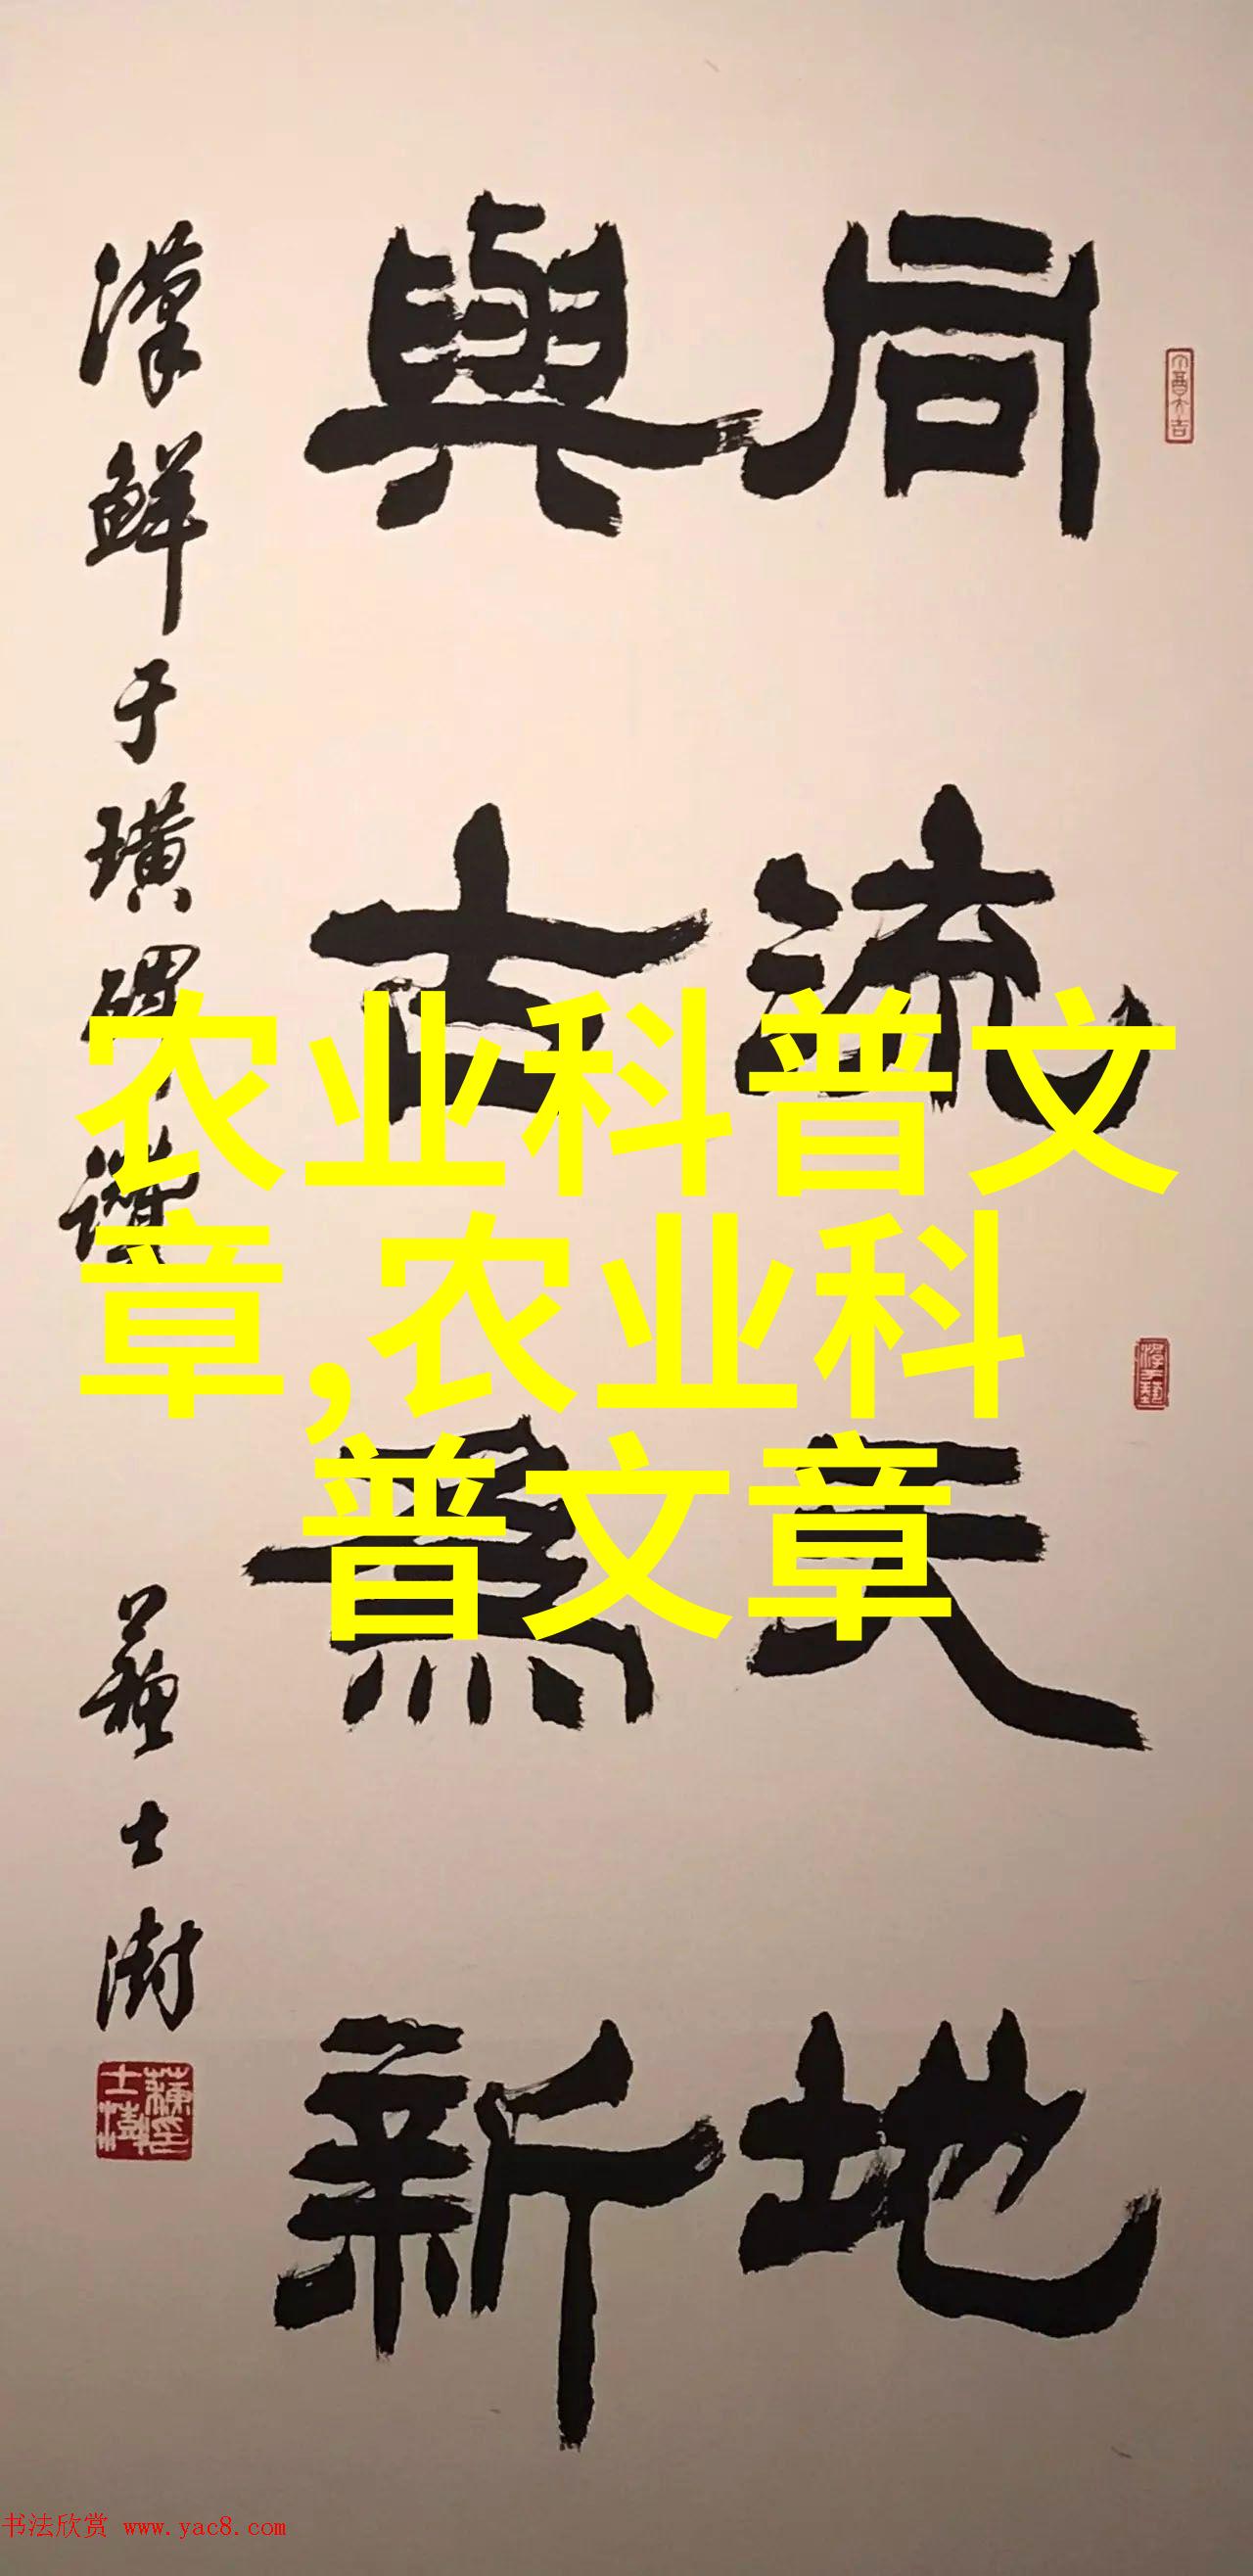 同流天地
與古為新
漢鮮于璜碑讚
蘇士澍
农业科普文
章,农业科
普文章
书法欣赏 www.yac8.com